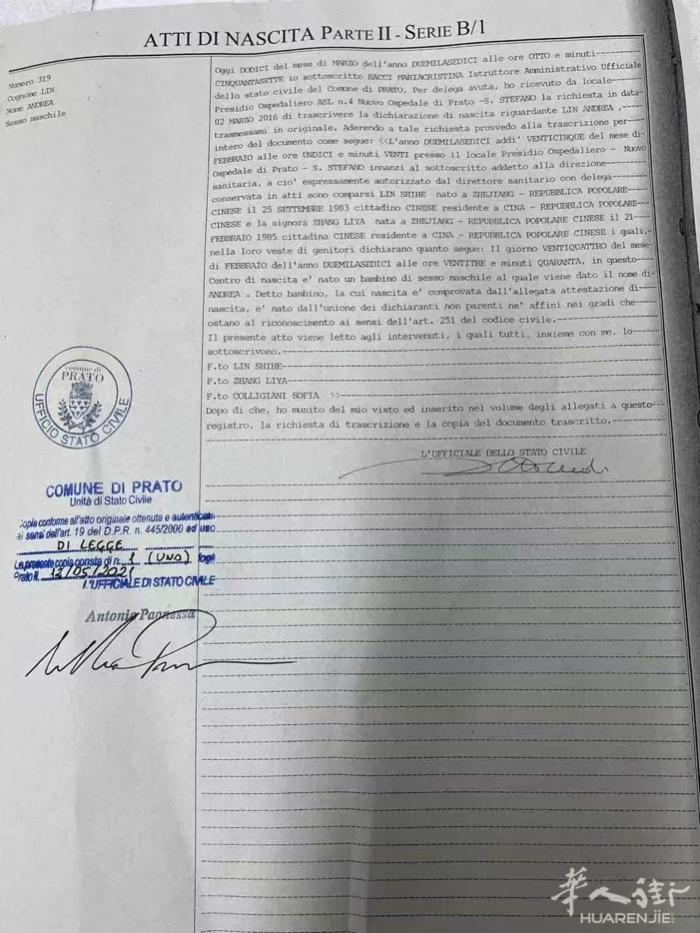 ATTI DI NASCITA PARTE II - SERIE B/1
Numero 319
Cognome LIN
Nome ANDREA
Sesso maschile
Oggi DODICI del mese di MARZO dell'anno DUEMILASEDICI alle ore OTTO e minuti
CINQUANTASETTE io sottoscritto BACCI MARIACRISTINA Istruttore Amministrativo Ufficiale
dello stato civile del Comune di PRATO, Per delega avuta, ho ricevuto da locale
Presidio Ospedaliero ASL n.4 Nuovo Ospedale di Prato -S. STEFANO la richiesta in data
02 MARZO 2016 di trascrivere la dichiarazione di nascita riguardante LIN ANDREA ,
trasmessami in originale. Aderendo a tale richiesta provvedo alla trascrizione per
intero del documento come segue: <<L'anno DUEMILASEDICI addi' VENTICINQUE del mese di
FEBBRAIO alle ore UNDICI e minuti VENTI presso il locale Presidio Ospedaliero - Nuovo
Ospedale di Prato - S. STEFANO innanzi al sottoscritto addetto alla direzione
sanitaria, a cio' espressamente autorizzato dal direttore sanitario con delega
conservata in atti sono comparsi LIN SHIHE nato a ZHEJIANG - REPUBBLICA POPOLARE
CINESE il 25 SETTEMBRE 1983 cittadino CINESE residente a CINA - REPUBBLICA POPOLARE
CINESE e la signora ZHANG LIYA nata a ZHEJIANG - REPUBBLICA POPOLARE CINESE il 21
FEBBRAIO 1985 cittadina CINESE residente a CINA - REPUBBLICA POPOLARE CINESE i quali,
nella loro veste di genitori dichiarano quanto segue: Il giorno VENTIQUATTRO del mese
di FEBBRAIO dell'anno DUEMILASEDICI alle ore VENTITRE e minuti QUARANTA, in questo
Centro di nascita e' nato un bambino di sesso maschile al quale viene dato il nome di
ANDREA . Detto bambino, la cui nascita e' comprovata dall'allegata attestazione di
nascita, e' nato dall'unione dei dichiaranti non parenti ne' affini nei gradi che
ostano al riconoscimento ai sensi dell'art. 251 del codice civile.
Il presente atto viene letto agli intervenuti, i quali tutti, insieme con me, lo
sottoscrivono.
F.to LIN SHIHE
F.to ZHANG LIYA
F.to COLLIGIANI SOFIA >>
Dopo di che, ho munito del mio visto ed inserito nel volume degli allegati a questo
registro, la richiesta di trascrizione e la copia del documento trascritto.
L'UFFICIALE DELLO STATO CIVILE
comune di
PRATO
UFFICIO STATO CIVILE
COMUNE DI PRATO
Unità di Stato Civile
Copia conforme all'atto originale ottenuta e autenticata
ai sensi dell'art. 19 del D.P.R. n. 445/2000 ad uso
DI LEGGE
La presente copia consta di n. 1 (UNO) fogli
Prato li, 12/05/2021
L'UFFICIALE DI STATO CIVILE
Antonio Paonessa
華人街
HUARENJIE